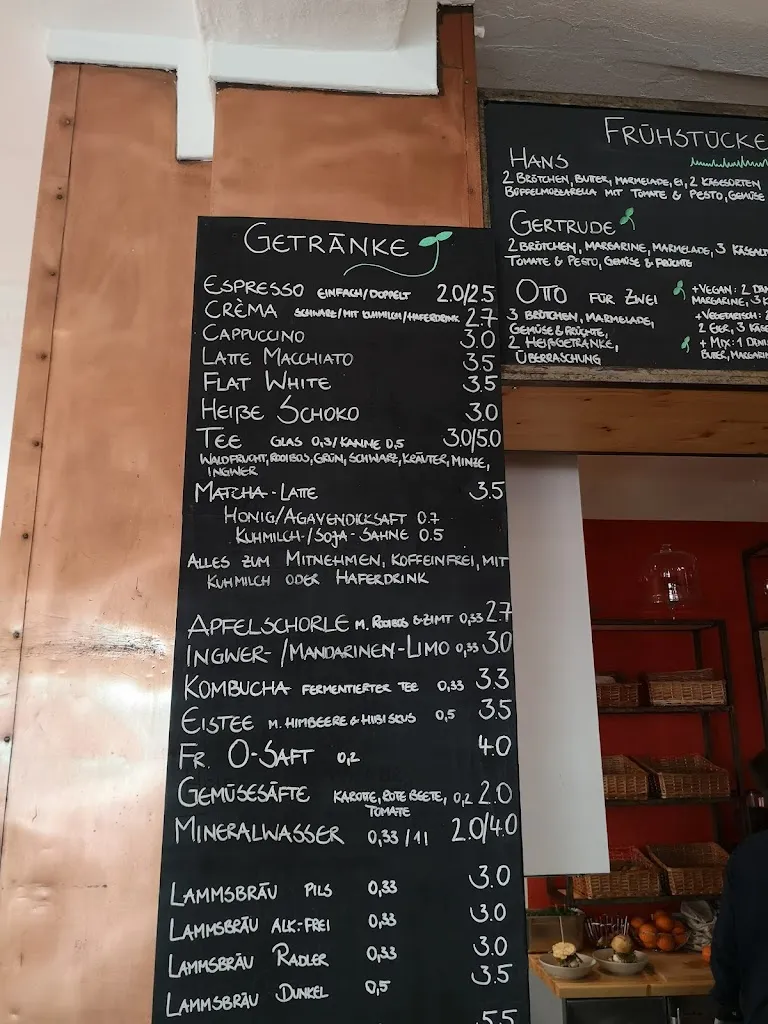 GETRÄNKE
ESPRESSO EINFACH/DOPPELT 2.0/2.5
CRÈMA SCHWARZ/MIT KUHMILCH/HAFERDRINK 2.7
CAPPUCCINO 3.0
LATTE MACCHIATO 3.5
FLAT WHITE 3.5
HEIßE SCHOKO 3.0
TEE GLAS 0,3/KANNE 0,5 3.0/5.0
WALDFRUCHT, ROOIBOS, GRÜN, SCHWARZ, KRÄUTER, MINZE,
INGWER
MATCHA-LATTE 3.5
HONIG/AGAVENDICKSAFT 0.7
KUHMILCH-/SOJA-SAHNE 0.5
ALLES ZUM MITNEHMEN, KOFFEINFREI, MIT
KUHMILCH ODER HAFERDRINK
APFELSCHORLE M. ROOIBOS & ZIMT 0,33 2.7
INGWER-/MANDARINEN-LIMO 0,33 3.0
KOMBUCHA FERMENTIERTER TEE 0,33 3.3
EISTEE M. HIMBEERE & HIBISKUS 0,5 3.5
FR. O-SAFT 0,2 4.0
GEMÜSESÄFTE KAROTTE, ROTE BEETE, 0,2 2.0
TOMATE
MINERALWASSER 0,33/1l 2.0/4.0
LAMMSBRÄU PILS 0,33 3.0
LAMMSBRÄU ALK.-FREI 0,33 3.0
LAMMSBRÄU RADLER 0,33 3.0
LAMMSBRÄU DUNKEL 0,5 3.5
5.5
FRÜHSTÜCKE
HANS
2 BRÖTCHEN, BUTTER, MARMELADE, EI, 2 KÄSESORTEN
BÜFFELMOZZARELLA MIT TOMATE & PESTO, GEMÜSE
GERTRUDE
2 BRÖTCHEN, MARGARINE, MARMELADE, 3 KÄSEALT
TOMATE & PESTO, GEMÜSE & FRÜCHTE
OTTO FÜR ZWEI
3 BRÖTCHEN, MARMELADE,
GEMÜSE & FRÜCHTE,
2 HEIßGETRÄNKE,
ÜBERRASCHUNG
+ VEGAN: 2 
MARGARINE, 3 K
+ VEGETARISCH: 2
2 EIER, 3 KÄSE
+ MIX: 1